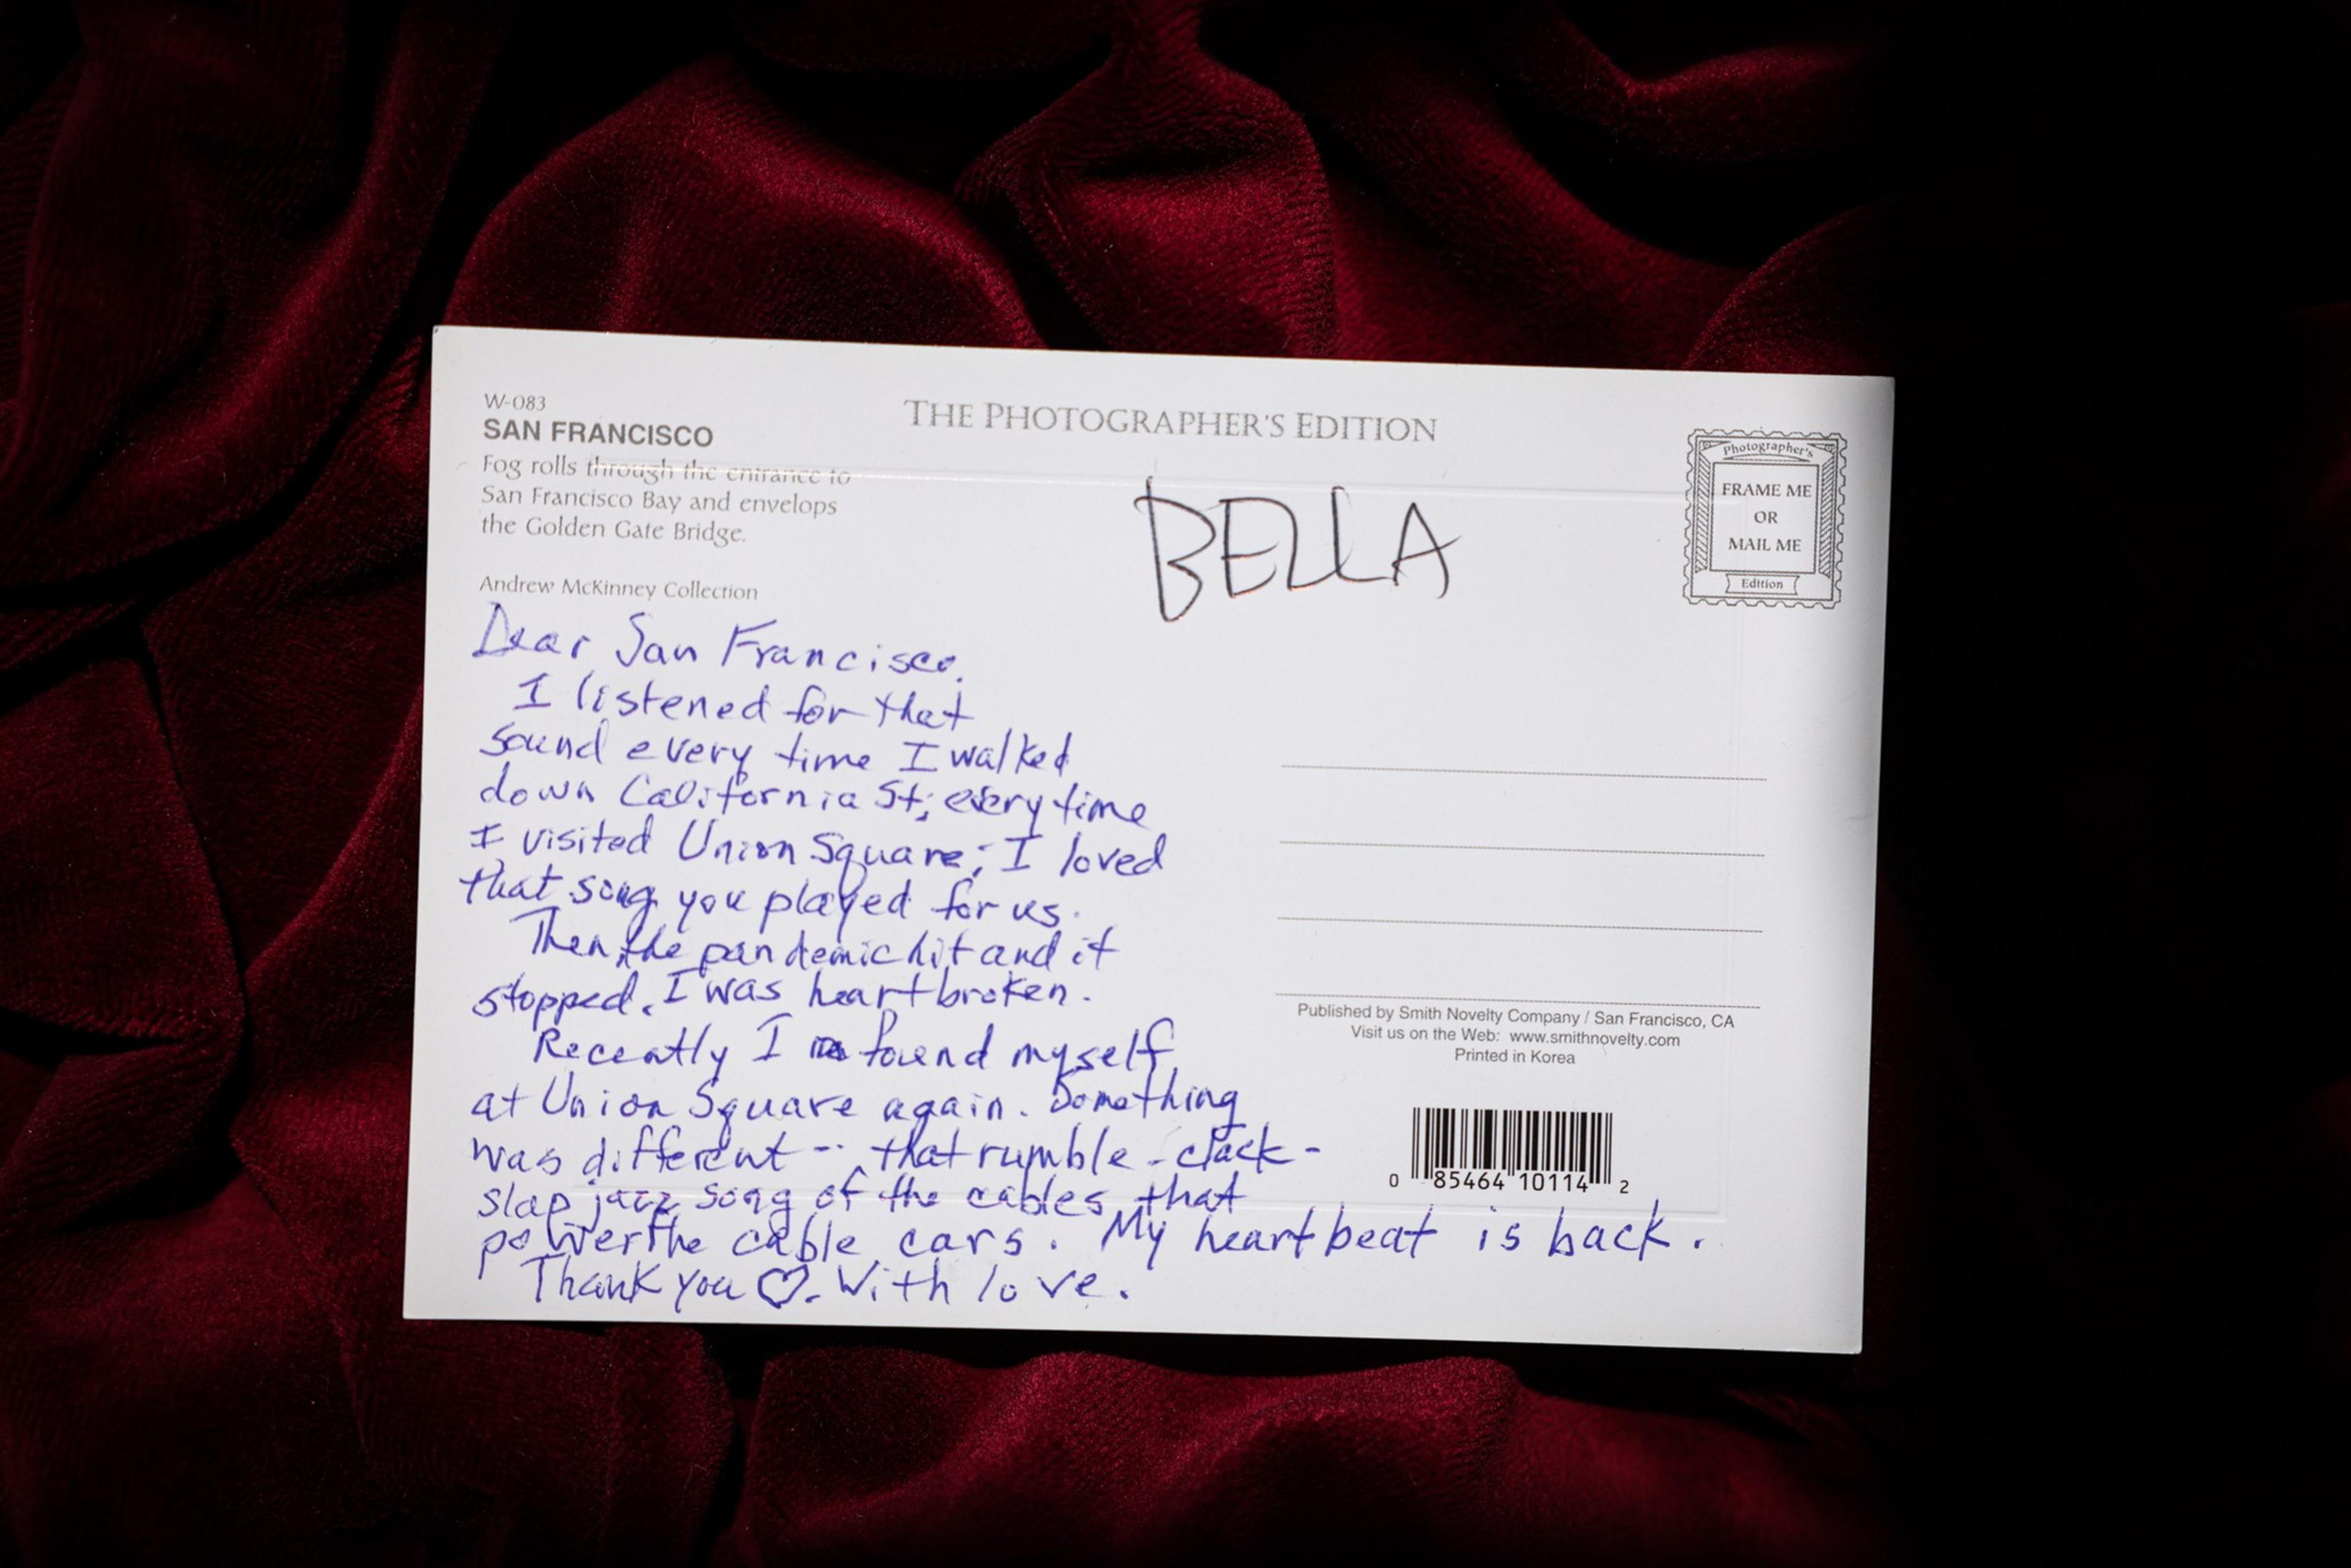 W-083
SAN FRANCISCO
Fog rolls through the entrance to
San Francisco Bay and envelops
the Golden Gate Bridge.
Andrew McKinney Collection
THE PHOTOGRAPHER'S EDITION
BELLA
Photographer's
FRAME ME
OR
MAIL ME
Edition
Dear San Francisco.
I listened for that
sound every time I walked
down California St; every time
I visited Union Square; I loved
that song you played for us.
Then the pandemic hit and it
stopped. I was heartbroken.
Recently I found myself
at Union Square again. Something
was different -- that rumble-clack-
slap jazz song of the cables that
power the cable cars. My heartbeat is back.
Thank you ♡. With love.
Published by Smith Novelty Company / San Francisco, CA
Visit us on the Web: www.smithnovelty.com
Printed in Korea
0 85464 10114 2